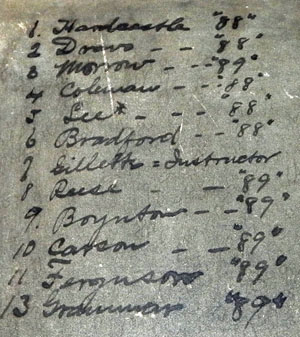 1. Hardcastle "88"
2 Drows - "88"
3 Morrow - - "89"
4 Coleman - - "88"
5 Lee* - - "88"
6 Bradford - - "88"
7 Gillette = Instructor
8 Reese - - "89"
9. Boynton - - "89"
10 Carson - - "89"
11 Ferguson "89"
13 Grammar "89"